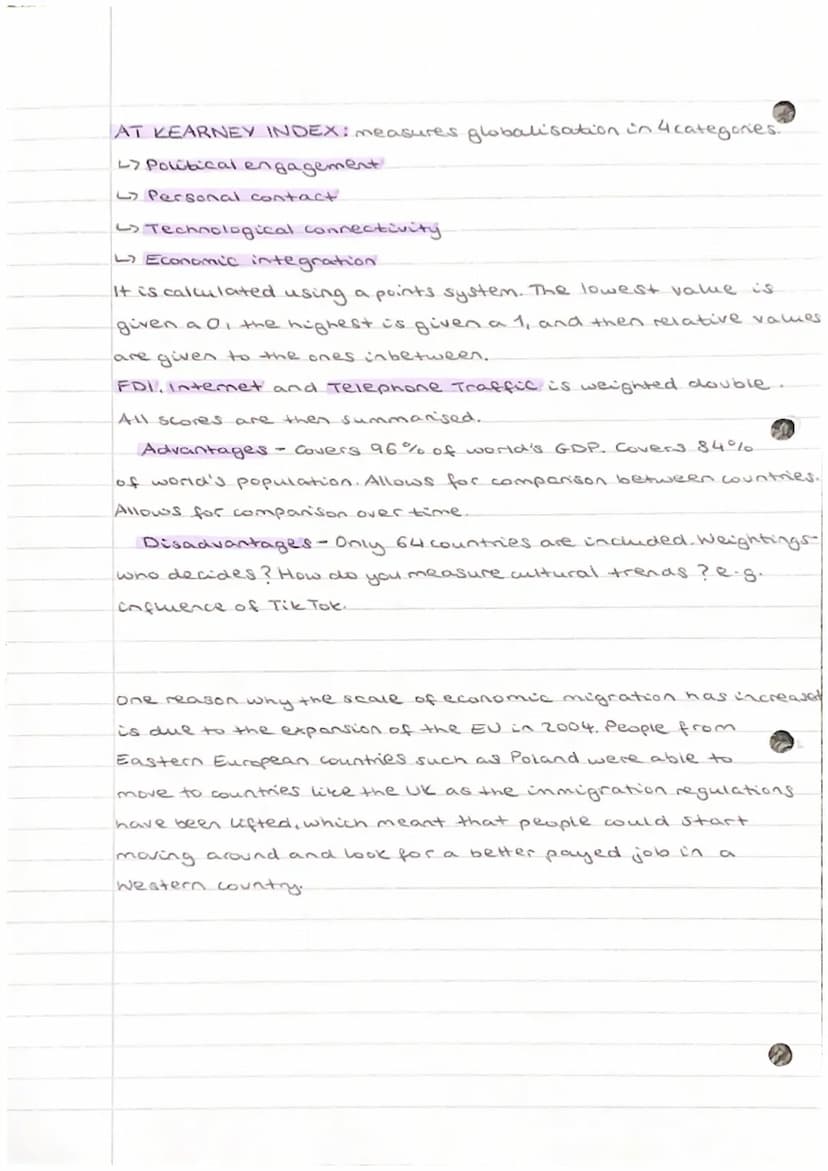 AT KEARNEY INDEX: measures globalisation in 4 categories.
↳ Political engagement
↳ Personal contact
↳ Technological connectivity
↳ Economic integration
It is calculated using a points system. The lowest value is
given a 0, the highest is given a 1, and then relative values
are given to the ones inbetween.
FDI, Internet and Telephone Traffic is weighted double.
All scores are then summarised.
Advantages - Covers 96% of world's GDP. Covers 84%
of world's population. Allows for comparison between countries.
Allows for comparison over time.
Disadvantages - Only 64 countries are included. Weightings-
who decides? How do you measure cultural trends? e.g.
influence of TikTok.
One reason why the scale of economic migration has increased
is due to the expansion of the EU in 2004. People from
Eastern European countries such as Poland were able to
move to countries like the UK as the immigration regulations
have been lifted, which meant that people could start
moving around and look for a better payed job in a
Western country.